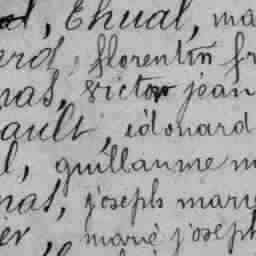 , Ehual, ma
erd, florentin fr
nas, victor jean
ault, édouard
l, guillaume m
nas, joseph marie
er, marie joseph